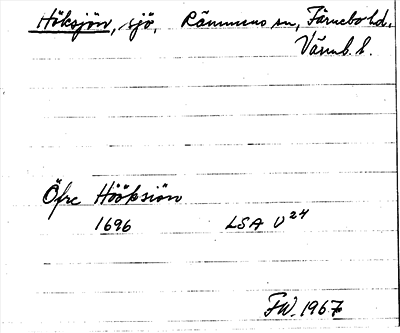 Höksjön, sjö, Rämmens sn, Färnebo hd,
Värml. l.
Öfre Hööksiön
1696 LSA U24
FW. 1967